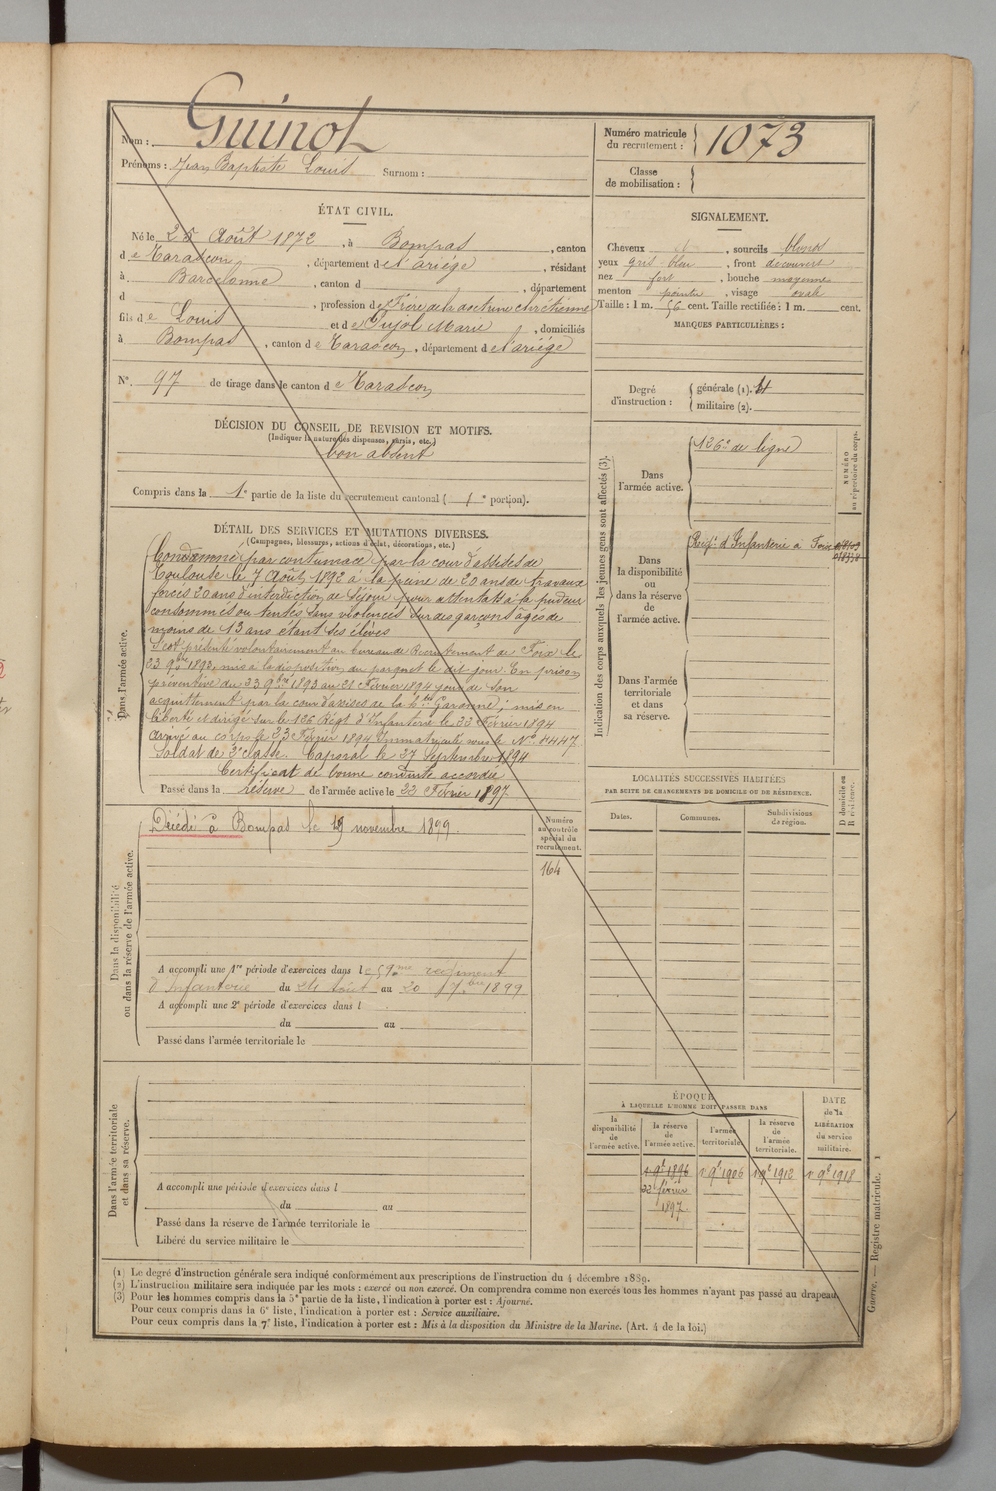 Nom : Guinot
Prénoms : Jean Baptiste Louis Surnom :
Numéro matricule du recrutement : 1073
Classe de mobilisation :
ÉTAT CIVIL.
Né le 25 Août 1872, à Bompas, canton
de Tarascon, département de l'ariège, résidant
à Barcelonne, canton d , département
d , profession de Frère de la doctrine chrétienne
fils de Louis et de Pujol Marie, domiciliés
à Bompas, canton de Tarascon, département de l'ariège
N° 97 de tirage dans le canton de Tarascon
SIGNALEMENT.
Cheveux , sourcils blonds
yeux gris bleu, front découvert
nez fort, bouche moyenne
menton pointu, visage ovale
Taille : 1 m. 56 cent. Taille rectifiée : 1 m. cent.
MARQUES PARTICULIÈRES :
Degré d'instruction : générale (1).
militaire (2).
DÉCISION DU CONSEIL DE REVISION ET MOTIFS.
(Indiquer la nature des dispenses, sursis, etc.)
bon absent
Compris dans la 1e partie de la liste du recrutement cantonal ( 1e portion).
DÉTAIL DES SERVICES ET MUTATIONS DIVERSES.
(Campagnes, blessures, actions d'éclat, décorations, etc.)
Dans l'armée active.
Condamné par contumace par la cour d'assises de
Toulouse le 7 Août 1892 à la peine de 20 ans de travaux
forcés 20 ans d'interdiction de séjour pour attentats à la pudeur
consommés ou tentés sans violences sur des garçons âgés de
moins de 13 ans étant ses élèves
S'est présenté volontairement au bureau de Recrutement de Foix le
23 9bre 1893, mis à la disposition du parquet le dit jour. En prison
préventive du 23 9bre 1893 au 21 Février 1894 jour de son
acquittement par la cour d'assises de la hte Garonne; mis en
liberté et dirigé sur le 126 Régt d'Infanterie le 22 Février 1894
Arrivé au corps le 23 Février 1894 Immatriculé sous le N° 4447
Soldat de 2e classe. Caporal le 27 Septembre 1894
Certificat de bonne conduite accordé
Passé dans la réserve de l'armée active le 22 Février 1897
Indication des corps auxquels les jeunes gens sont affectés (3).
NUMÉRO au répertoire du corps.
Dans l'armée active. 126e de ligne
Dans la disponibilité ou dans la réserve de l'armée active. Régt d'Infanterie à Foix
Dans l'armée territoriale et dans sa réserve.
Dans la disponibilité ou dans la réserve de l'armée active.
Décédé à Bompas le 19 novembre 1899.
Numéro au contrôle spécial du recrutement.
164
A accompli une 1re période d'exercices dans le 59me régiment
d'Infanterie du 24 Août au 20 7bre 1899
A accompli une 2e période d'exercices dans l
du au
Passé dans l'armée territoriale le
LOCALITÉS SUCCESSIVES HABITÉES
PAR SUITE DE CHANGEMENTS DE DOMICILE OU DE RÉSIDENCE.
D domicile ou R résidence.
Dates. Communes. Subdivisions de région.
Dans l'armée territoriale et dans sa réserve.
A accompli une période d'exercices dans l
du au
Passé dans la réserve de l'armée territoriale le
Libéré du service militaire le
ÉPOQUE
À LAQUELLE L'HOMME DOIT PASSER DANS
la disponibilité de l'armée active. la réserve de l'armée active. l'armée territoriale. la réserve de l'armée territoriale.
DATE de la LIBÉRATION du service militaire.
1 9e 1896 1 9e 1906 1 9e 1912 1 9e 1918
22 février
1897
(1) Le degré d'instruction générale sera indiqué conformément aux prescriptions de l'instruction du 4 décembre 1889.
(2) L'instruction militaire sera indiquée par les mots : exercé ou non exercé. On comprendra comme non exercés tous les hommes n'ayant pas passé au drapeau.
(3) Pour les hommes compris dans la 5e partie de la liste, l'indication à porter est : Ajourné.
Pour ceux compris dans la 6e liste, l'indication à porter est : Service auxiliaire.
Pour ceux compris dans la 7e liste, l'indication à porter est : Mis à la disposition du Ministre de la Marine. (Art. 4 de la loi.)
Guerre. — Registre matricule. 1